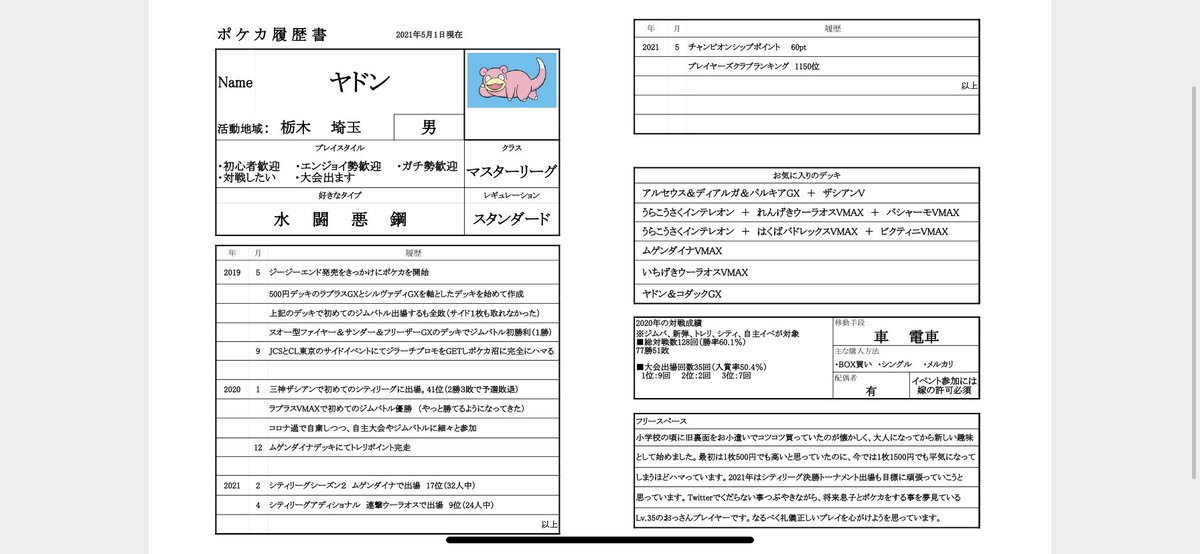 ポケカ履歴書
2021年5月1日現在
Name
ヤドン
活動地域： 栃木 埼玉
男
プレイスタイル
・初心者歓迎 ・エンジョイ勢歓迎 ・ガチ勢歓迎
・対戦したい ・大会出ます
クラス
マスターリーグ
好きなタイプ
水 闘 悪 鋼
レギュレーション
スタンダード
年 月 履歴
2019 5 ジージーエンド発売をきっかけにポケカを開始
500円デッキのラプラスGXとシルヴァディGXを軸としたデッキを始めて作成
上記のデッキで初めてのジムバトル出場するも全敗（サイド1枚も取れなかった）
ヌオー型ファイヤー＆サンダー＆フリーザーGXのデッキでジムバトル初勝利（1勝）
9 JCSとCL東京のサイドイベントにてジラーチプロモをGETしポケカ沼に完全にハマる
2020 1 三神ザシアンで初めてのシティリーグに出場。41位（2勝3敗で予選敗退）
ラプラスVMAXで初めてのジムバトル優勝 （やっと勝てるようになってきた）
コロナ過で自粛しつつ、自主大会やジムバトルに細々と参加
12 ムゲンダイナデッキにてトレリポイント完走
2021 2 シティリーグシーズン2 ムゲンダイナで出場 17位（32人中）
4 シティリーグアディショナル 連撃ウーラオスで出場 9位（24人中）
以上
年 月 履歴
2021 5 チャンピオンシップポイント 60pt
プレイヤーズクラブランキング 1150位
以上
お気に入りのデッキ
アルセウス＆ディアルガ＆パルキアGX ＋ ザシアンV
うらこうさくインテレオン ＋ れんげきウーラオスVMAX ＋ バシャーモVMAX
うらこうさくインテレオン ＋ はくばバドレックスVMAX ＋ ビクティニVMAX
ムゲンダイナVMAX
いちげきウーラオスVMAX
ヤドン＆コダックGX
2020年の対戦成績
※ジムバ、新弾、トレリ、シティ、自主イベが対象
■総対戦数128回（勝率60.1％）
77勝51敗
■大会出場回数35回（入賞率50.4％）
1位：9回 2位：2回 3位：7回
移動手段
車 電車
主な購入方法
・BOX買い ・シングル ・メルカリ
配偶者
有
イベント参加には
嫁の許可必須
フリースペース
小学校の頃に旧裏面をお小遣いでコツコツ買っていたのが懐かしく、大人になってから新しい趣味
として始めました。最初は1枚500円でも高いと思っていたのに、今では1枚1500円でも平気になって
しまうほどハマっています。2021年はシティリーグ決勝トーナメント出場も目標に頑張っていこうと
思っています。Twitterでくだらない事つぶやきながら、将来息子とポケカをする事を夢見ている
Lv.35のおっさんプレイヤーです。なるべく礼儀正しいプレイを心がけようを思っています。